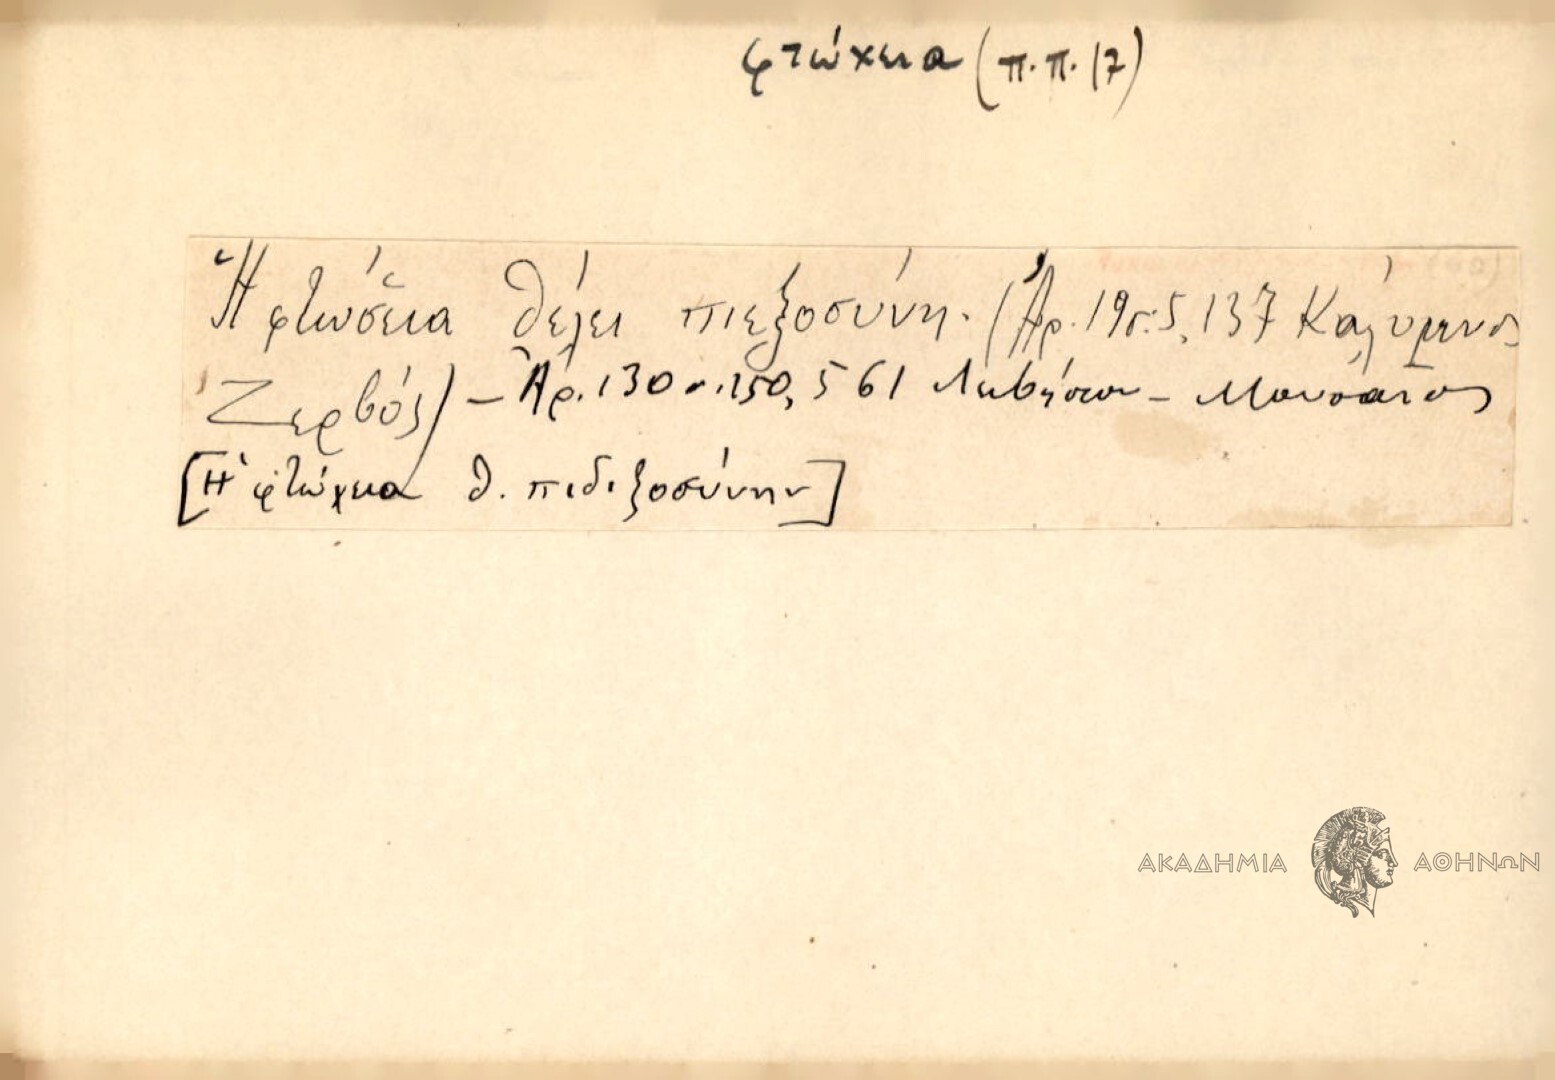 φτώχεια (π.π. 17)
Ἡ φτώσ̌εια θέλει πιεξοσύνη. (Ἀρ. 137 Κάλυμνος
Ζερβός) – Ἀρ. 130 561 Λιβήσιον – Μουσαῖος
[Ἡ φτώχεια θ. πιδεξοσύνην]
ΑΚΑΔΗΜΙΑ ΑΘΗΝΩΝ